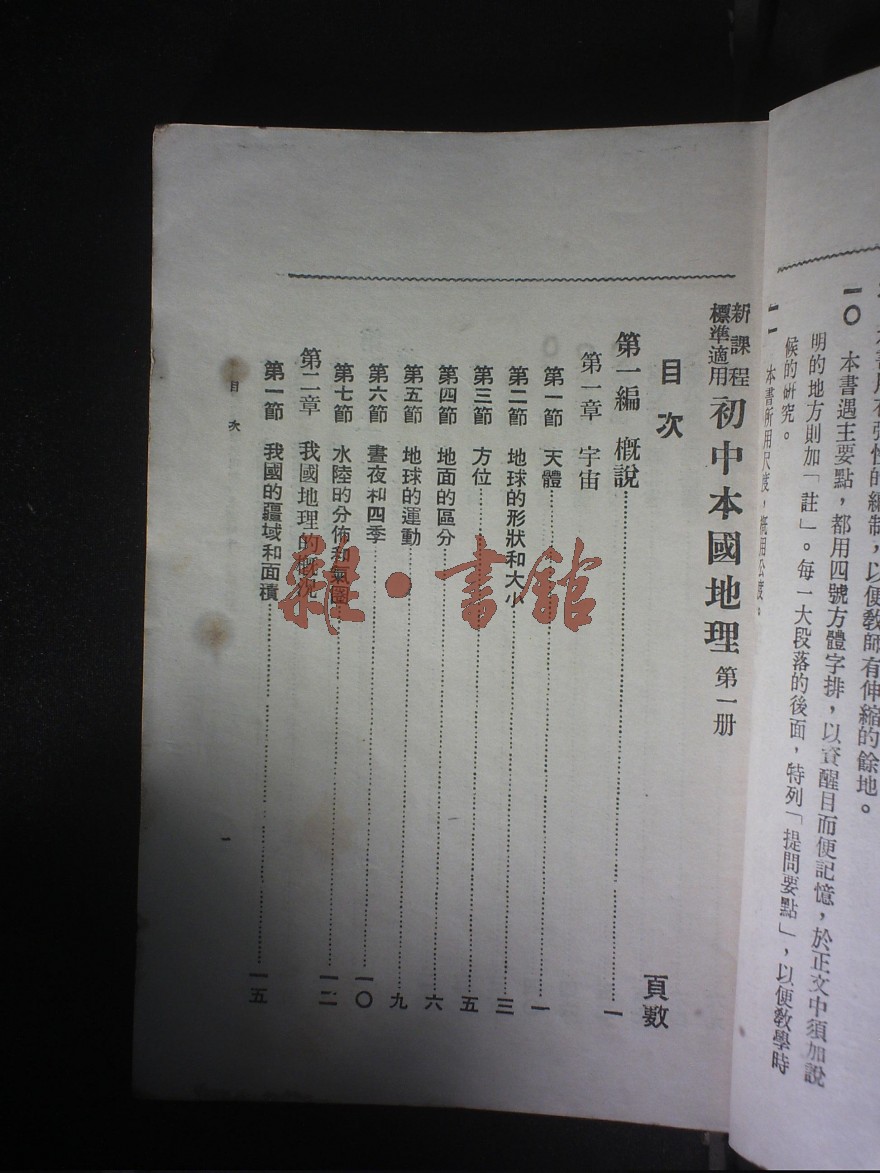 本書用有彈性的編制，以便教師有伸縮的餘地。
一〇　本書遇主要點，都用四號方體字排，以資醒目而便記憶，於正文中須加說
明的地方則加「註」。每一大段落的後面，特列「提問要點」，以便教學時
候的研究。
一一　本書所用尺度，概用公度。
新課程
標準適用
初中本國地理 第一册
目次
頁數
第一編 概說 一
第一章 宇宙
第一節 天體 一
第二節 地球的形狀和大小 三
第三節 方位 五
第四節 地面的區分 六
第五節 地球的運動 九
第六節 晝夜和四季 一〇
第七節 水陸的分佈和氣圈 一二
第二章 我國地理的概況
第一節 我國的疆域和面積 一五
目次
一
雜·書館